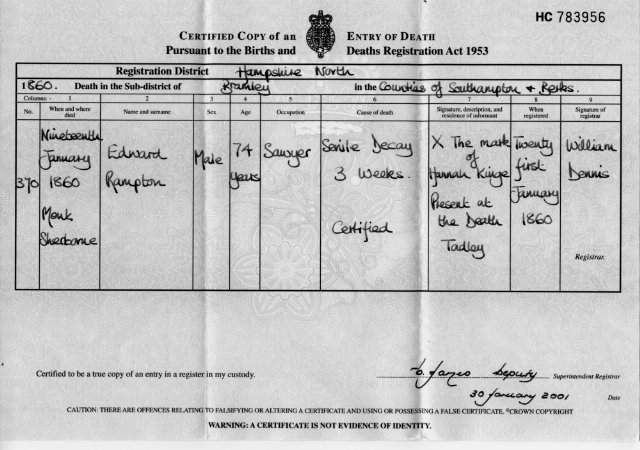 HC 783956
CERTIFIED COPY of an ENTRY OF DEATH
Pursuant to the Births and Deaths Registration Act 1953
Registration District Hampshire North
1860. Death in the Sub-district of Bramley in the Counties of Southampton & Berks.
Columns:- 1 2 3 4 5 6 7 8 9
No. When and where died Name and surname Sex Age Occupation Cause of death Signature, description, and residence of informant When registered Signature of registrar
370 Nineteenth January 1860 Monk Sherborne Edward Rampton Male 74 years Sawyer Senile Decay 3 Weeks. Certified X The mark of Hannah Kinge Present at the Death Tadley Twenty first January 1860 William Dennis Registrar.
Certified to be a true copy of an entry in a register in my custody. Deputy Superintendent Registrar
30 January 2001 Date
CAUTION: THERE ARE OFFENCES RELATING TO FALSIFYING OR ALTERING A CERTIFICATE AND USING OR POSSESSING A FALSE CERTIFICATE. ©CROWN COPYRIGHT
WARNING: A CERTIFICATE IS NOT EVIDENCE OF IDENTITY.